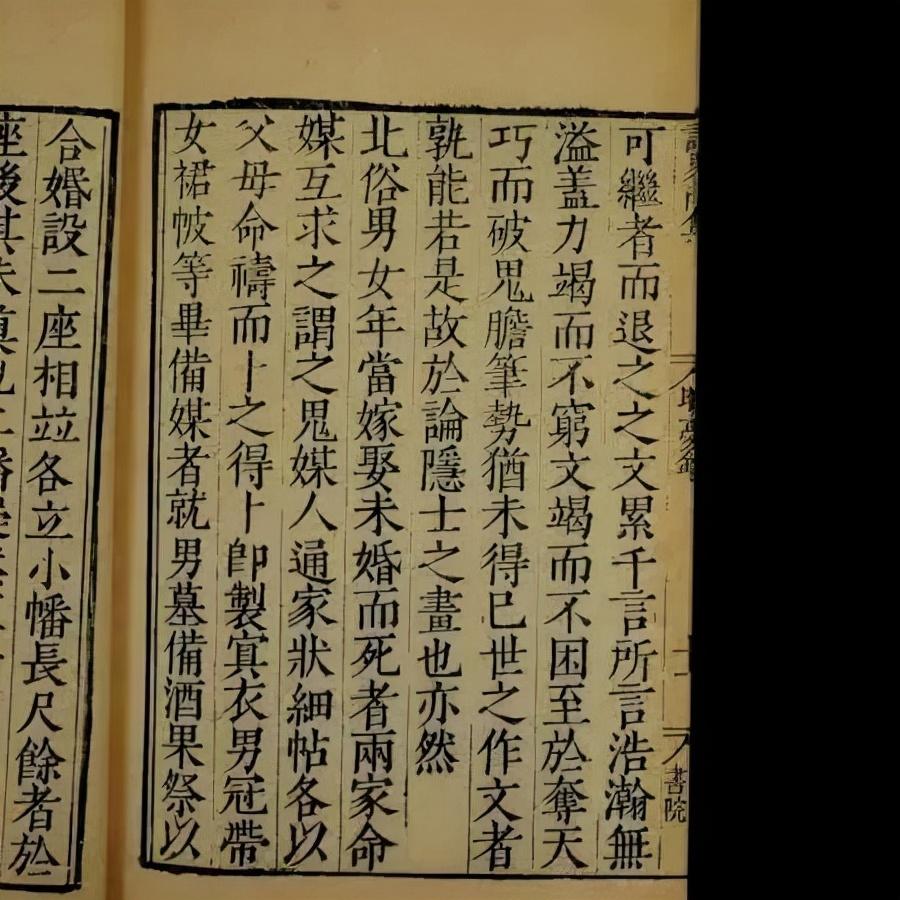 書院
可繼者而退之之文累千言所言浩瀚無
溢蓋力竭而不窮文竭而不困至於奪天
巧而破鬼膽筆勢猶未得已世之作文者
孰能若是故於論隱士之畫也亦然
北俗男女年當嫁娶未婚而死者兩家命
媒互求之謂之鬼媒人通家狀細帖各以
父母命禱而卜之得卜即製㝠衣男冠帶
女裙帔等畢備媒者就男墓備酒果祭以
合婚設二座相竝各立小幡長尺餘者於
座後其未奠也二幡